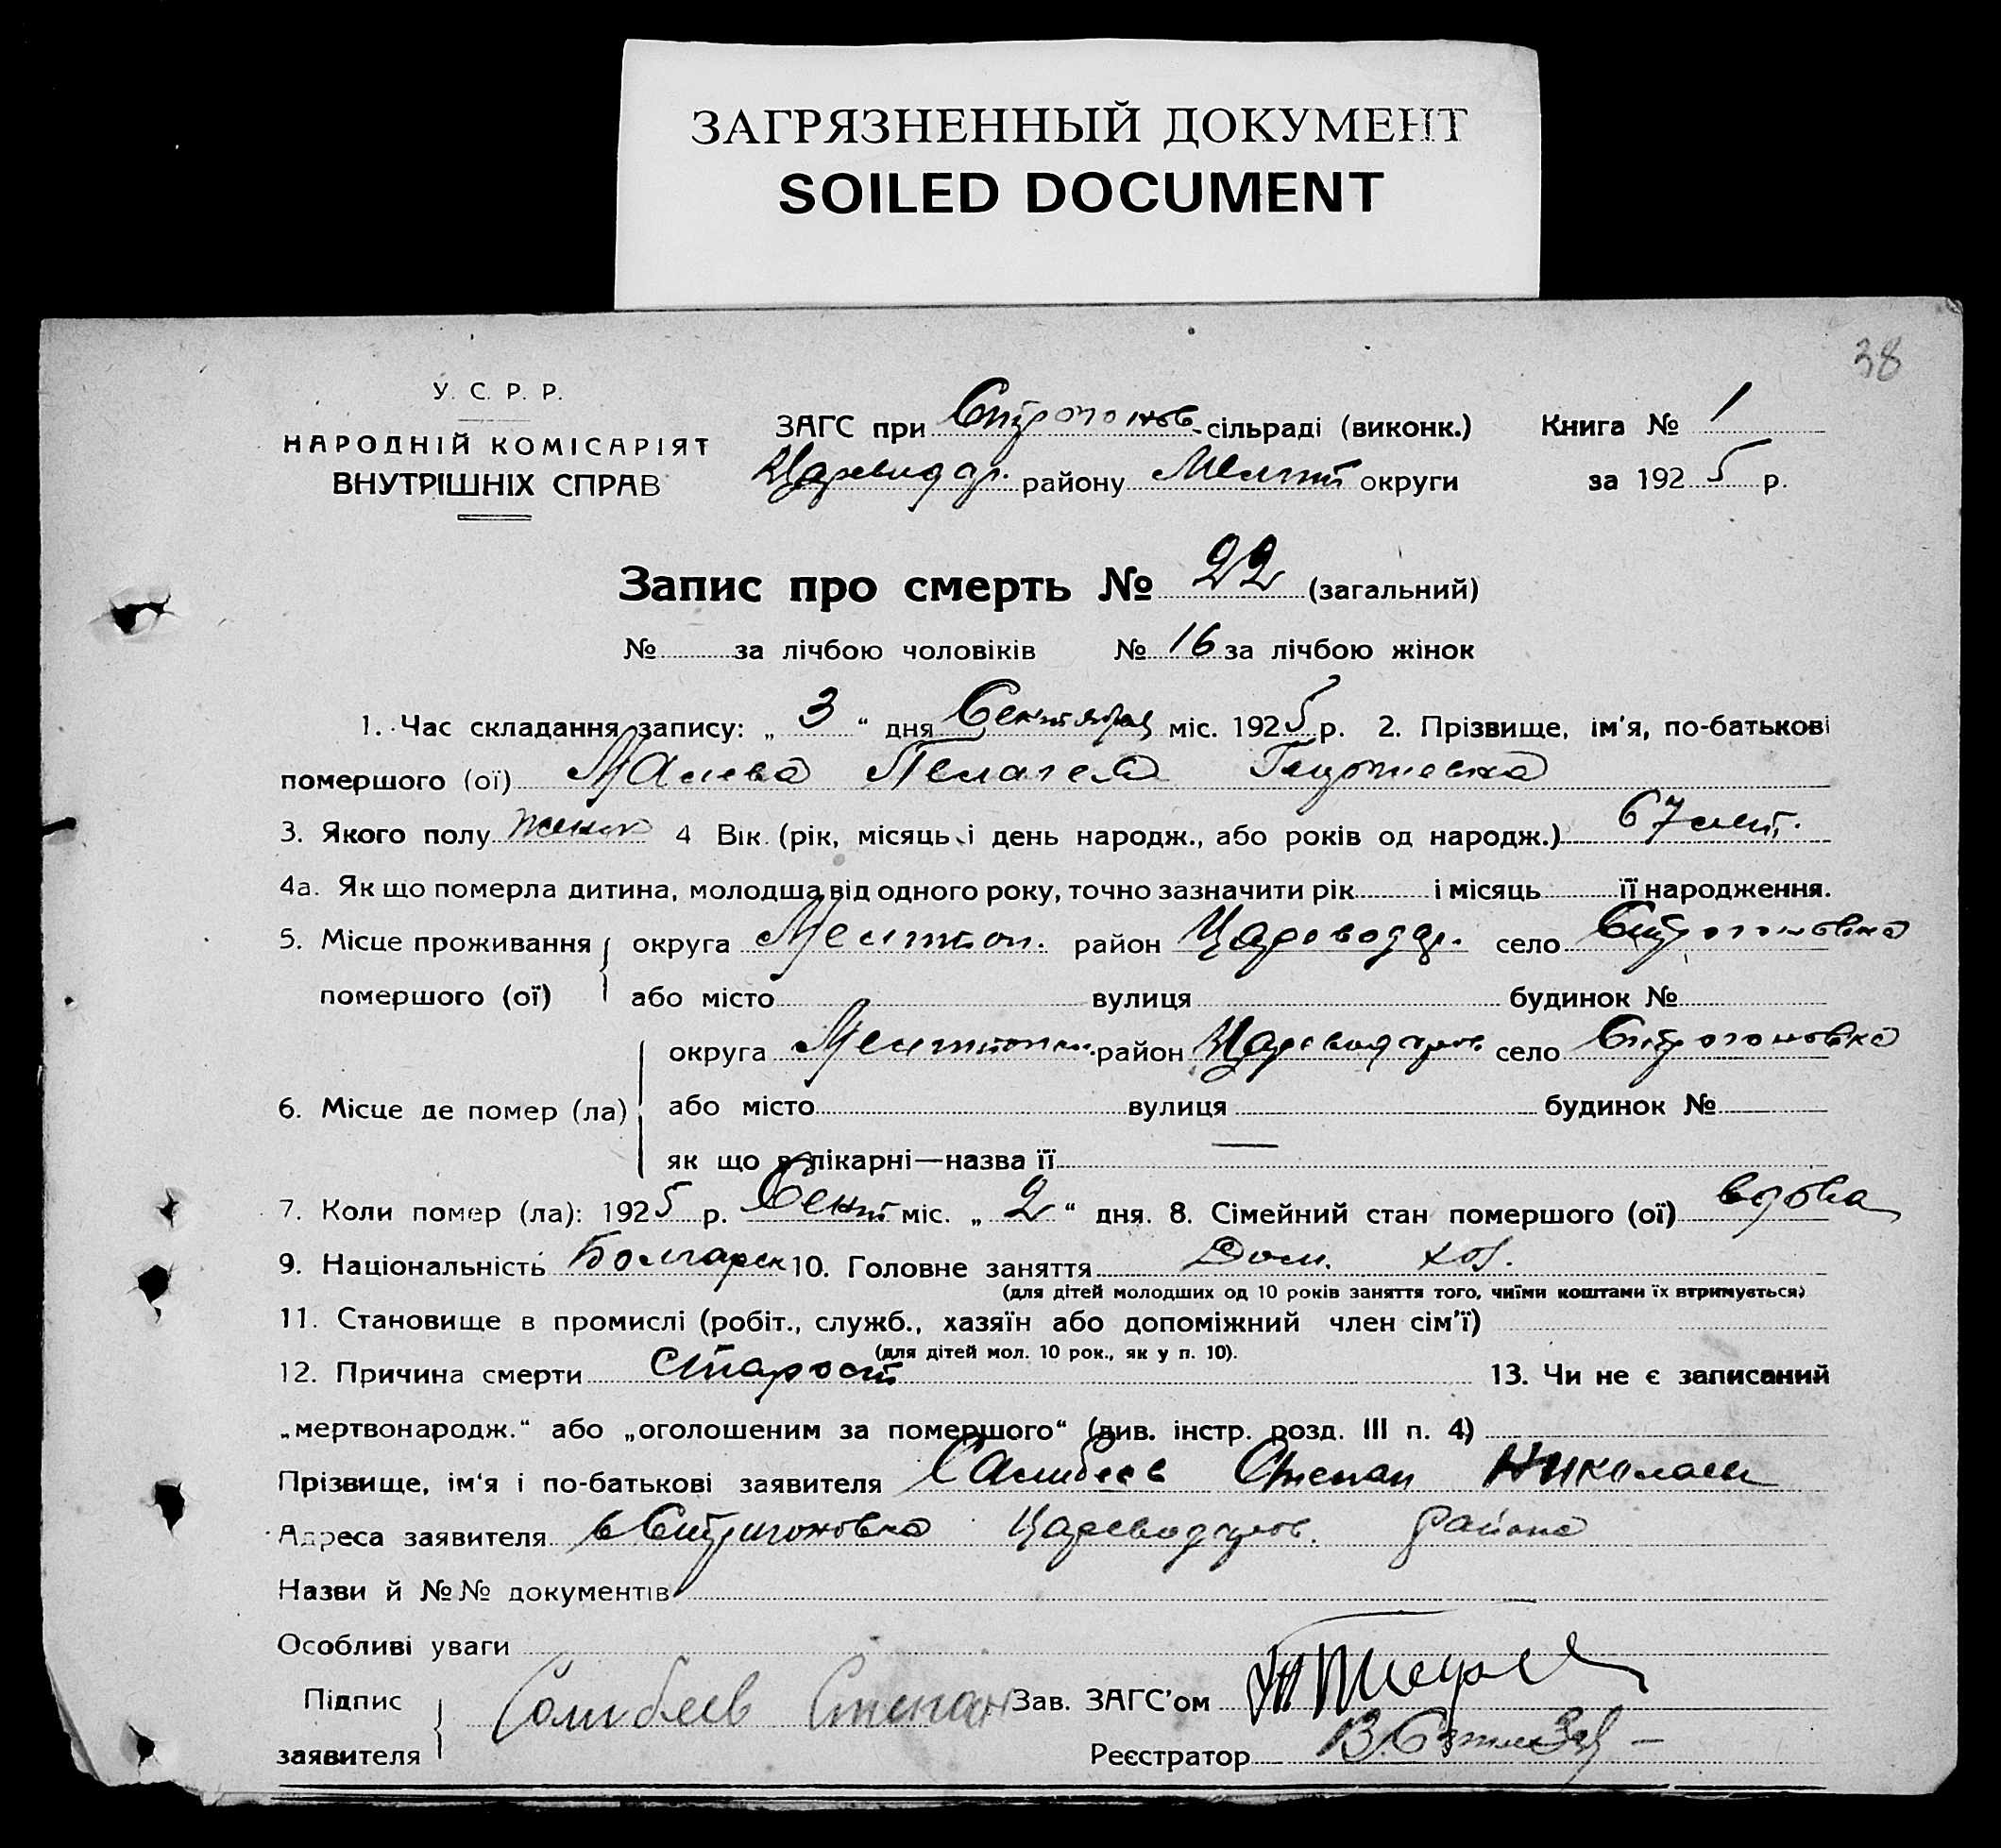 ЗАГРЯЗНЕННЫЙ ДОКУМЕНТ
SOILED DOCUMENT
38
У. С. Р. Р.
НАРОДНІЙ КОМІСАРІЯТ
ВНУТРІШНІХ СПРАВ
ЗАГС при Строгонов. сільраді (виконк.)
Царевод р. району Мелит округи
Книга № 1
за 1925 р.
Запис про смерть № 22 (загальний)
№ за лічбою чоловіків № 16 за лічбою жінок
1. Час складання запису: „ 3 “ дня Сентября міс. 1925 р. 2. Прізвище, ім'я, по-батькові
помершого (ої) Пелагея Георгиевна
3. Якого полу женск 4 Вік (рік, місяць і день народж., або років од народж.) 67 лет.
4а. Як що померла дитина, молодша від одного року, точно зазначити рік і місяць її народження.
5. Місце проживання округа Мелитоп. район Цареводар. село Строгоновка
помершого (ої) або місто вулиця будинок №
округа Мелитопол. район село Строгоновка
6. Місце де помер (ла) або місто вулиця будинок №
як що в лікарні—назва її —
7. Коли помер (ла): 1925 р. Сент міс. „ 2 “ дня. 8. Сімейний стан помершого (ої) вдова
9. Національність Болгарск 10. Головне заняття Дом. хоз.
(для дітей молодших од 10 років заняття того, чиїми коштами їх втримується)
11. Становище в промислі (робіт., служб., хазяїн або допоміжний член сім'ї)
(для дітей мол. 10 рок., як у п. 10).
12. Причина смерти старост 13. Чи не є записаний
„мертвонародж.“ або „оголошеним за помершого“ (див. інстр. розд. III п. 4)
Прізвище, ім'я і по-батькові заявителя Салибеев Степан Николаев
Адреса заявителя с Строгоновка района
Назви й №№ документів
Особливі уваги
Підпис Салибеев Степан Зав. ЗАГС'ом
заявителя Реєстратор